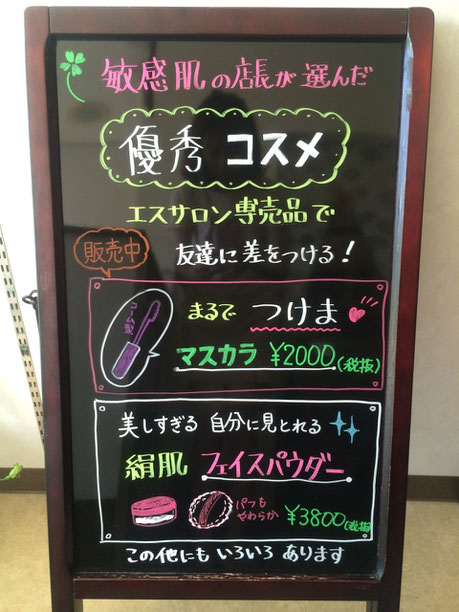 敏感肌の店長が選んだ
優秀 コスメ
エスサロン専売品で
販売中
友達に差をつける!
コーム型
まるで つけま
マスカラ ¥2000(税抜)
美しすぎる 自分に見とれる
絹肌 フェイスパウダー
パフも
やわらか
¥3800(税抜)
この他にもいろいろあります